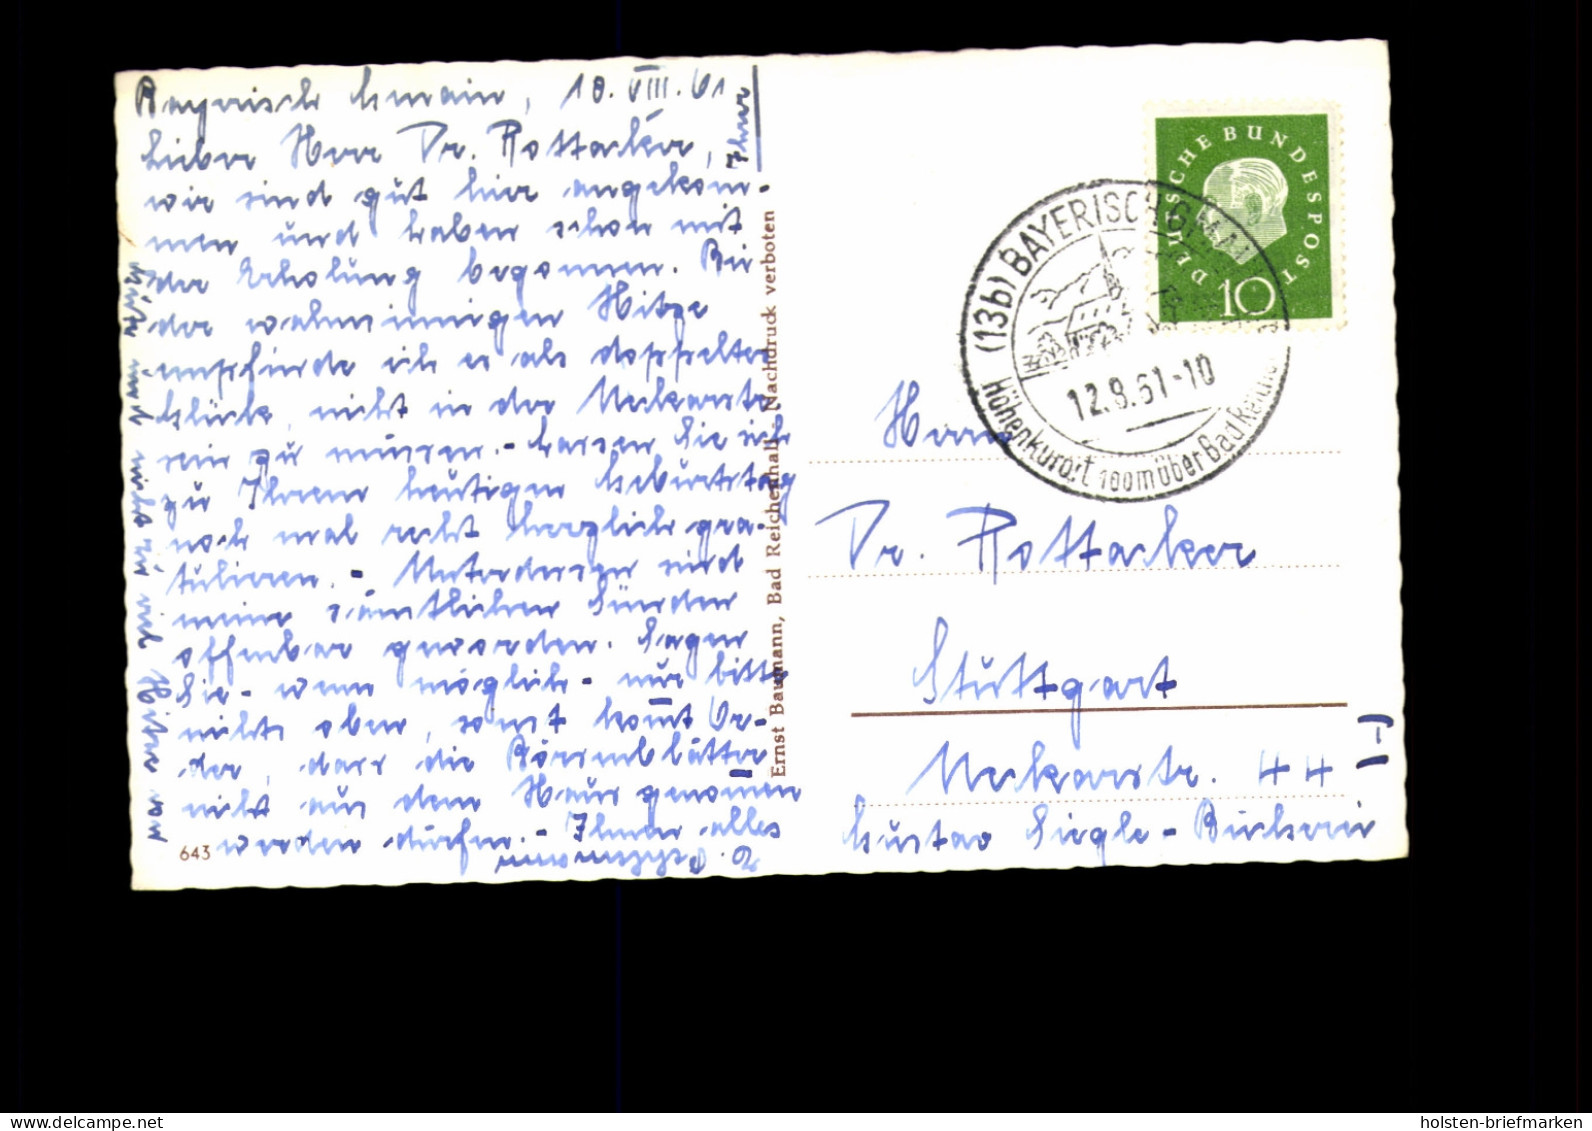 Bayrisch Gmain, 10. VIII. 61
Lieber Herr Dr. Rottacker,
wir sind gut hier angekom-
men und haben schon mit
der Erholung begonnen. Bei
der wahnsinnigen Hitze
empfinde ich es als doppeltes
Glück, nicht in der Neckarstr.
sein zu müssen. - Lassen Sie sich
zu Ihrem heutigen Geburtstag
noch mal recht herzlich gra-
tulieren. - Unterdessen sind
meine sämtlichen Sünden
offenbar geworden. Sagen
Sie - wenn möglich - nur bitte
nichts oben, sonst kommt Or-
der, dass die Börsenblätter
nicht aus dem Haus genommen
werden dürfen. - Ihnen alles
Gute und nicht so viel Hitze von
Ihrer
643
Ernst Baumann, Bad Reichenhall, Nachdruck verboten
DEUTSCHE BUNDESPOST
10
(13b) BAYERISCH GMAIN
12.8.61-10
Höhenkurort 100m über Bad Reiche
Herrn
Dr. Rottacker
Stuttgart
Neckarstr. 44
Gustav Siegle-Bücherei
holsten-briefmarken